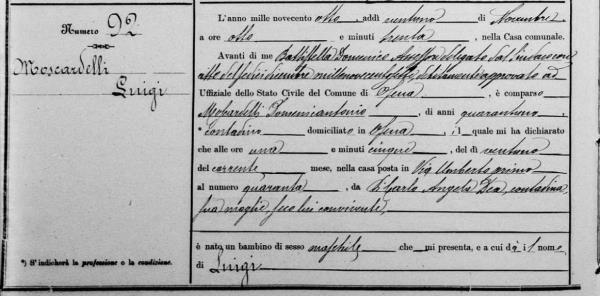 Numero 92
Moscardelli
Luigi
*) S'indicherà la professione o la condizione.
L'anno mille novecento otto, addì ventuno di Novembre,
a ore otto e minuti trenta, nella Casa comunale.
Avanti di me Battistella Domenico Assessore delegato dal Sindaco con
atto del sedici dicembre millenovecentosette debitamente approvato ad
Uffiziale dello Stato Civile del Comune di Ofena, è comparso
Moscardelli Domenicantonio, di anni quarantuno,
* contadino domiciliato in Ofena, il quale mi ha dichiarato
che alle ore una e minuti cinque, del dì ventuno
del corrente mese, nella casa posta in Via Umberto primo
al numero quaranta, da Angela Dea, contadina,
sua moglie, seco lui convivente,
è nato un bambino di sesso maschile che mi presenta, e a cui dà il nome
di Luigi